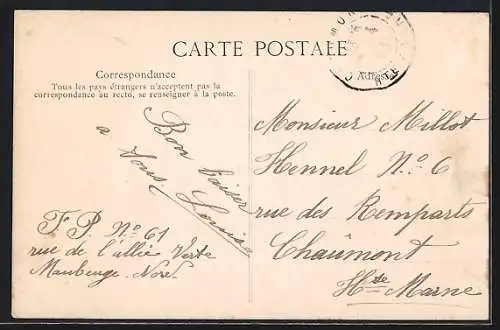 CARTE POSTALE
Correspondance
Tous les pays étrangers n'acceptent pas la
correspondance au recto, se renseigner à la poste.
Adresse
Bon baiser
a Vous
Louis
F. P. N.º 61
rue de l'allée Verte
Maubeuge. Nord.
Monsieur Millot
Hennel N.º 6
rue des Remparts
Chaûmont
Hte Marne